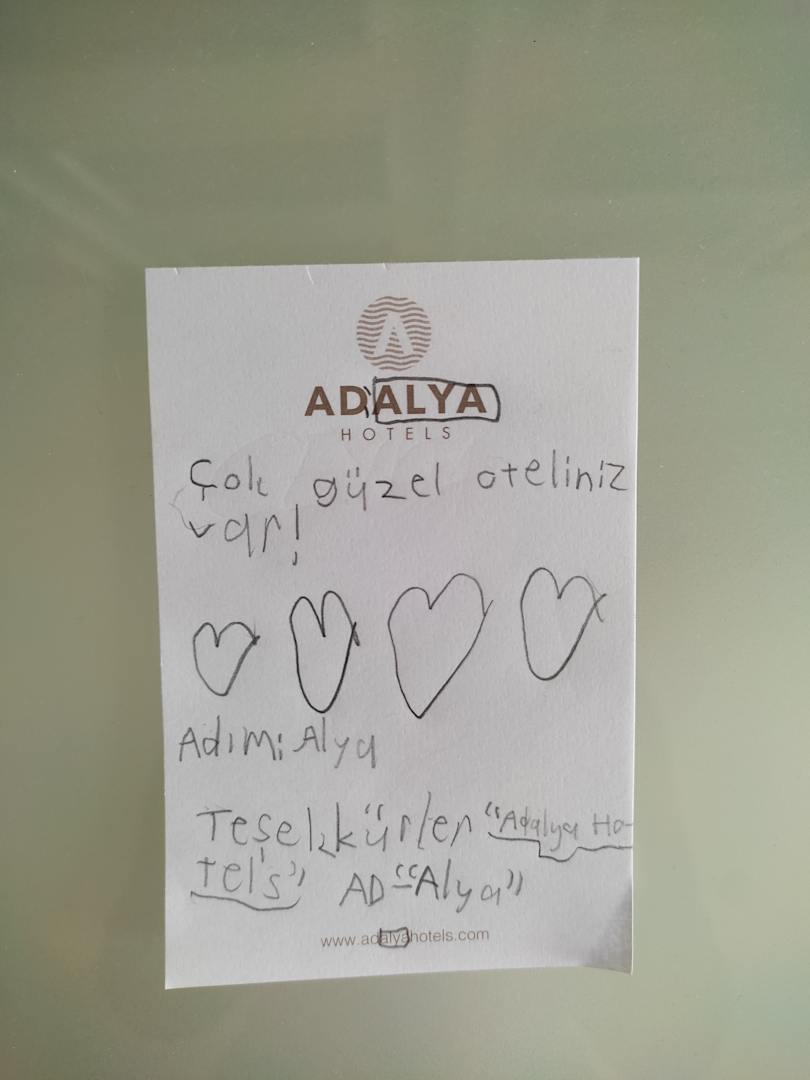 A
ADALYA
HOTELS
Çok güzel oteliniz
var!
Adım: Alya
Teşekkürler "Adalya Ho-
tel's" AD "Alya"
www.adalyahotels.com